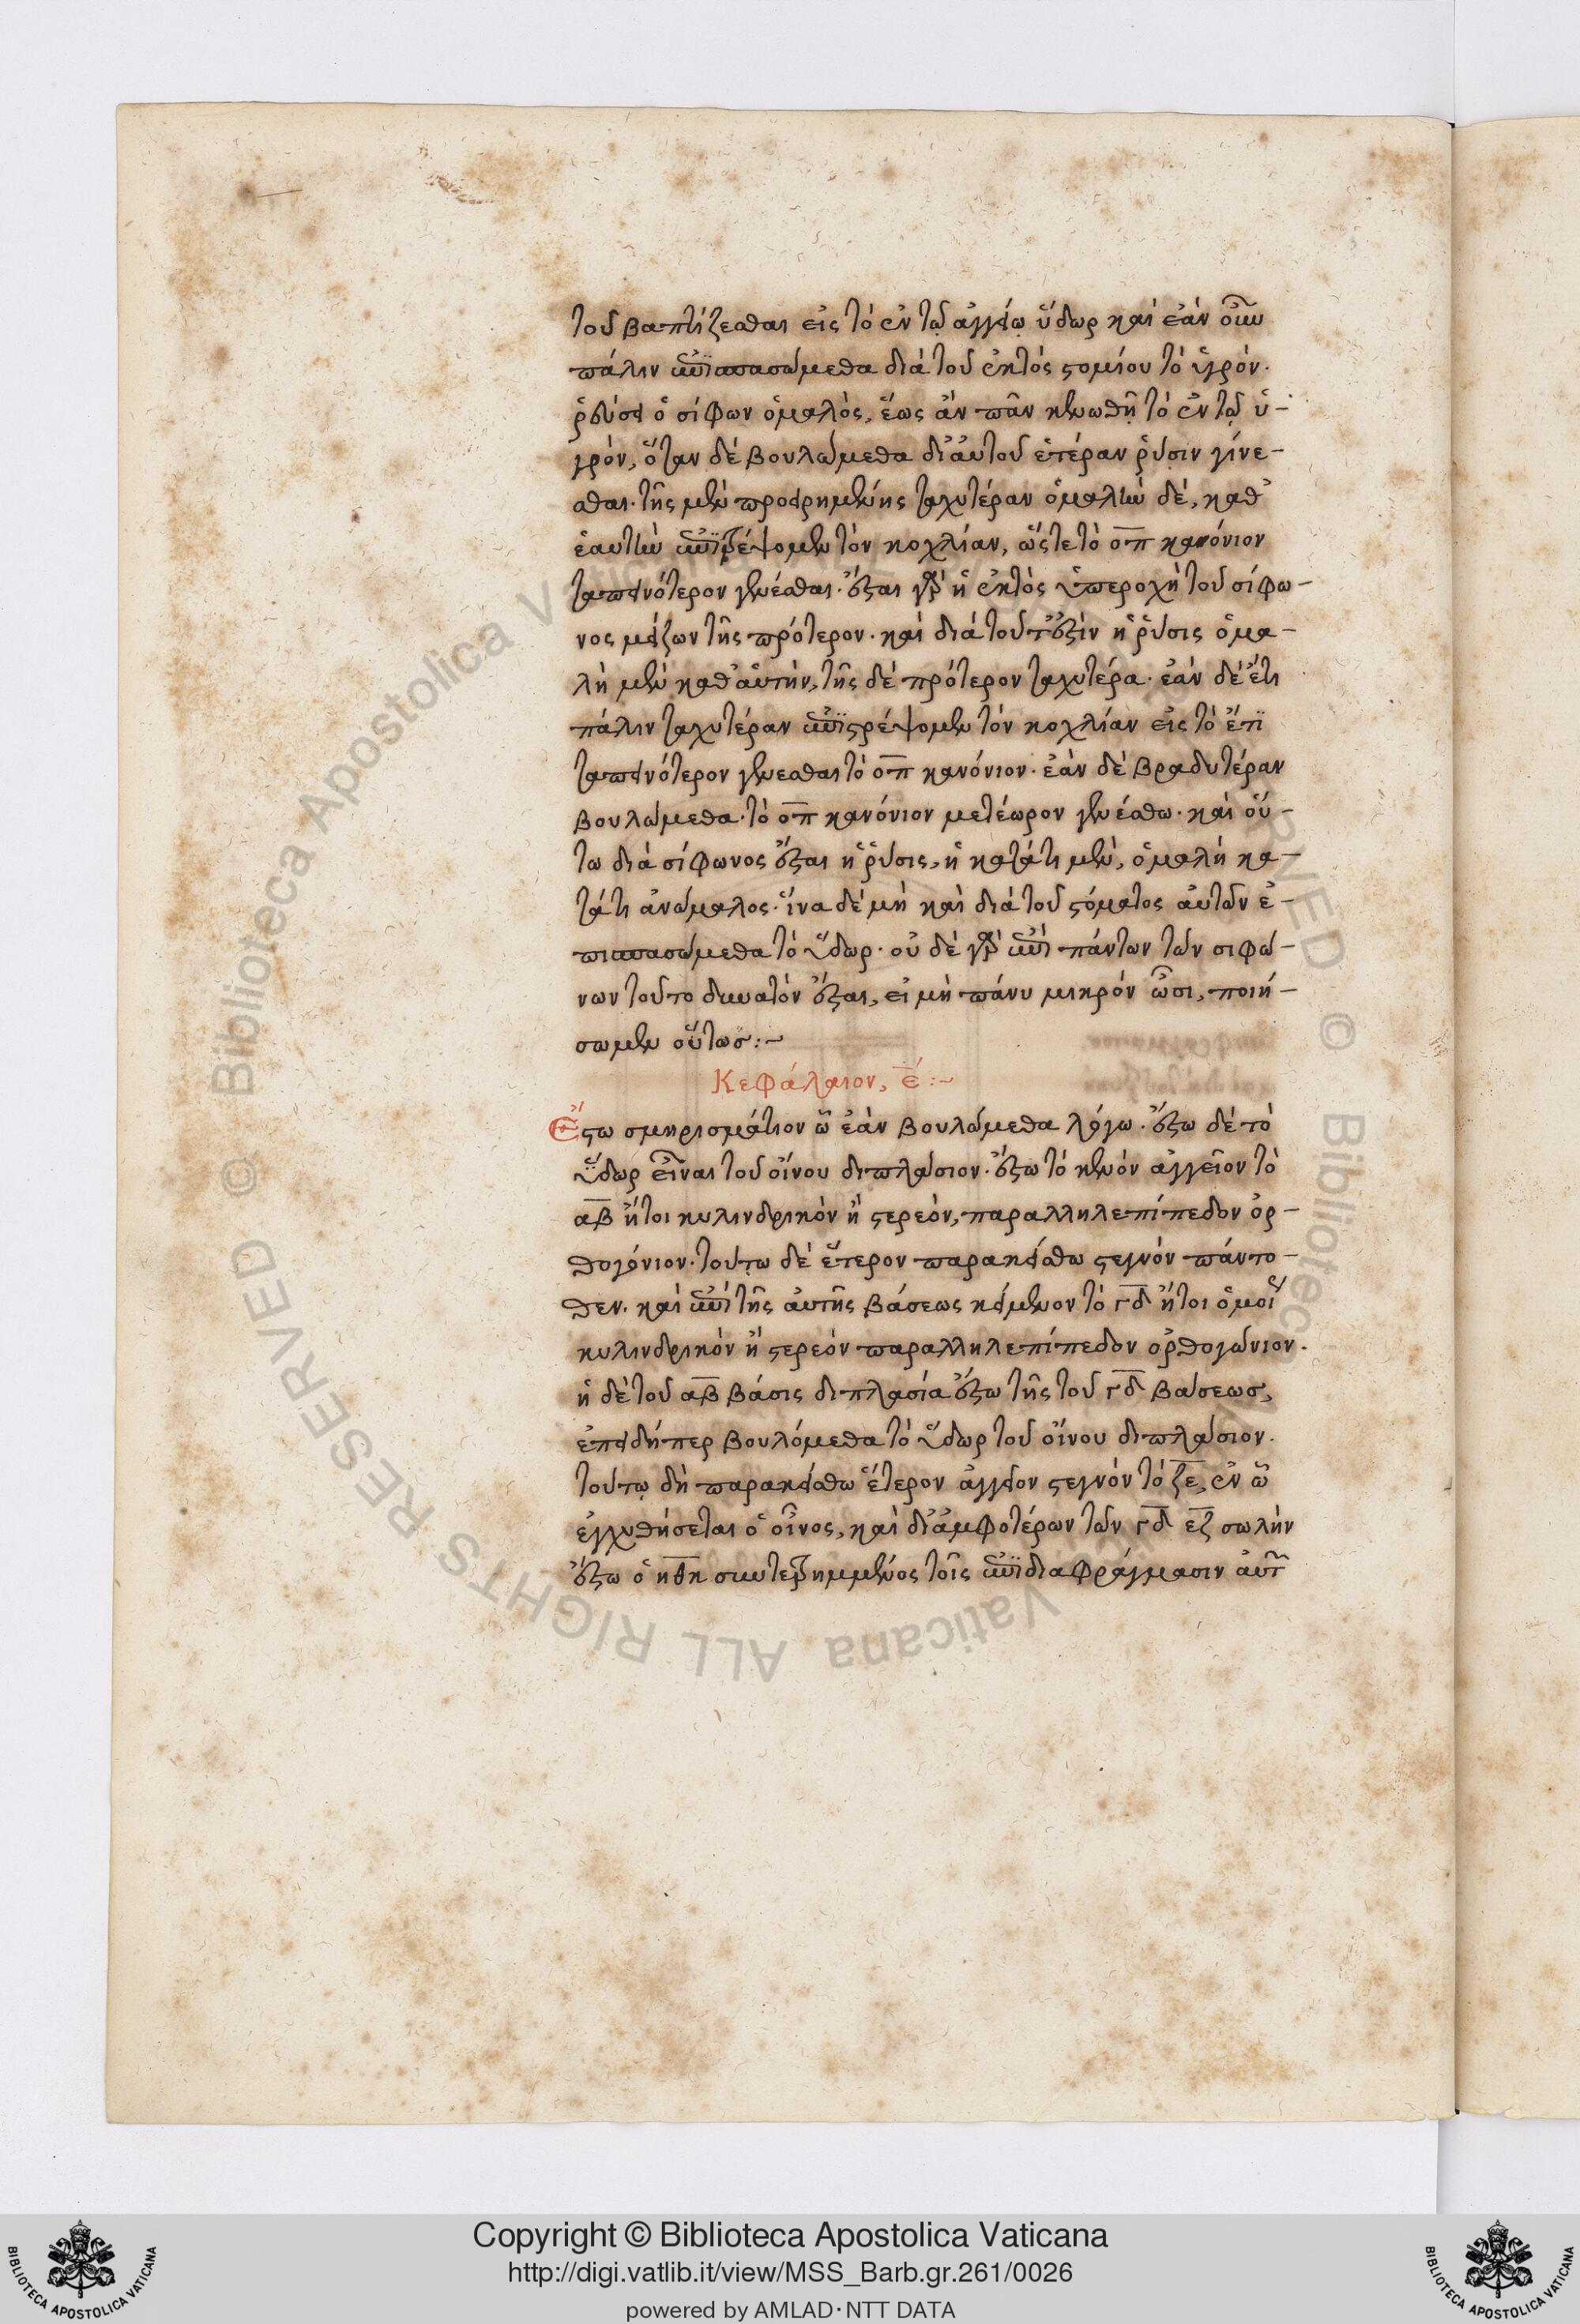 τοῦ βαπτίζεσθαι εἰς τὸ ἐν τῷ ἀγγείῳ ὕδωρ καὶ ἐὰν οὖν
πάλιν ἐπισπασώμεθα διὰ τοῦ ἐκτὸς στομίου τὸ ὑγρόν.
ῥεύσει ὁ σίφων ὁμαλὸς, ἕως ἂν πᾶν κενωθῇ τὸ ἐν τῷ ὑ-
γρόν, ὅταν δὲ βουλώμεθα δι' αὐτοῦ ἑτέραν ῥύσιν γίνε-
σθαι. τῆς μὲν προειρημένης ταχυτέραν ὁμαλὴν δὲ, καθ'
ἑαυτὴν ἐπιστρέψομεν τὸν κοχλίαν, ὥστε τὸ οπ κανόνιον
ταπεινότερον γενέσθαι. ἔσται γὰρ ἡ ἐκτὸς ὑπεροχὴ τοῦ σίφω-
νος μείζων τῆς πρότερον. καὶ διὰ τοῦτ' ἐστὶν ἡ ῥύσις ὁμα-
λὴ μὲν καθ' αὑτήν, τῆς δὲ πρότερον ταχυτέρα. ἐὰν δὲ ἔτι
πάλιν ταχυτέραν ἐπιστρέψομεν τὸν κοχλίαν εἰς τὸ ἔτι
ταπεινότερον γενεσθαι τὸ οπ κανόνιον. ἐὰν δὲ βραδυτέραν
βουλώμεθα. τὸ οπ κανόνιον μετέωρον γενέσθω. καὶ οὕ-
τω διὰ σίφωνος ἔσται ἡ ῥύσις, ἡ κατάτι μὲν, ὁμαλὴ κα-
τάτι ἀνώμαλος. ἵνα δὲ μὴ καὶ διὰ τοῦ στόματος αὐτῶν ἐ-
πισπασώμεθα τὸ ὕδωρ. οὐ δὲ γὰρ ἐπὶ πάντων τῶν σιφώ-
νων τοῦτο δυνατὸν ἔσται, εἰ μὴ πάνυ μικρὸν ὦσι, ποιή-
σωμεν οὕτως:~
Κεφάλαιον, ε:~
Ἔστω σμηρισμάτιον ᾧ ἐὰν βουλώμεθα λόγω. ἔστω δὲ τὸ
ὕδωρ εἶναι τοῦ οἴνου διπλάσιον. ἔστω τὸ κενὸν ἀγγεῖον τὸ
αβ ἤτοι κυλινδρικὸν ἢ στερεὸν, παραλληλεπίπεδον ὀρ-
θογόνιον. τούτῳ δὲ ἕτερον παρακείσθω στεγνὸν πάντο-
θεν. καὶ ἐπὶ τῆς αὐτῆς βάσεως κείμενον τὸ γδ ἤτοι ὁμοί
κυλινδρικὸν ἢ στερεὸν παραλληλεπίπεδον ὀρθογώνιον.
ἡ δὲ τοῦ αβ βάσις διπλασία ἔστω τῆς τοῦ γδ βάσεως,
ἐπειδήπερ βουλόμεθα τὸ ὕδωρ τοῦ οἴνου διπλάσιον.
τούτῳ δὴ παρακείσθω ἕτερον ἀγγεῖον στεγνὸν τὸ ζε, ἐν ᾧ
ἐγχυθήσεται ὁ οἶνος, καὶ δι' ἀμφοτέρων τῶν γδ εζ σωλὴν
ἔστω ὁ ηθκ συντετρημμένος τοῖς ἐπιδιαφράγμασιν αὐτ
Copyright © Biblioteca Apostolica Vaticana
http://digi.vatlib.it/view/MSS_Barb.gr.261/0026
powered by AMLAD·NTT DATA